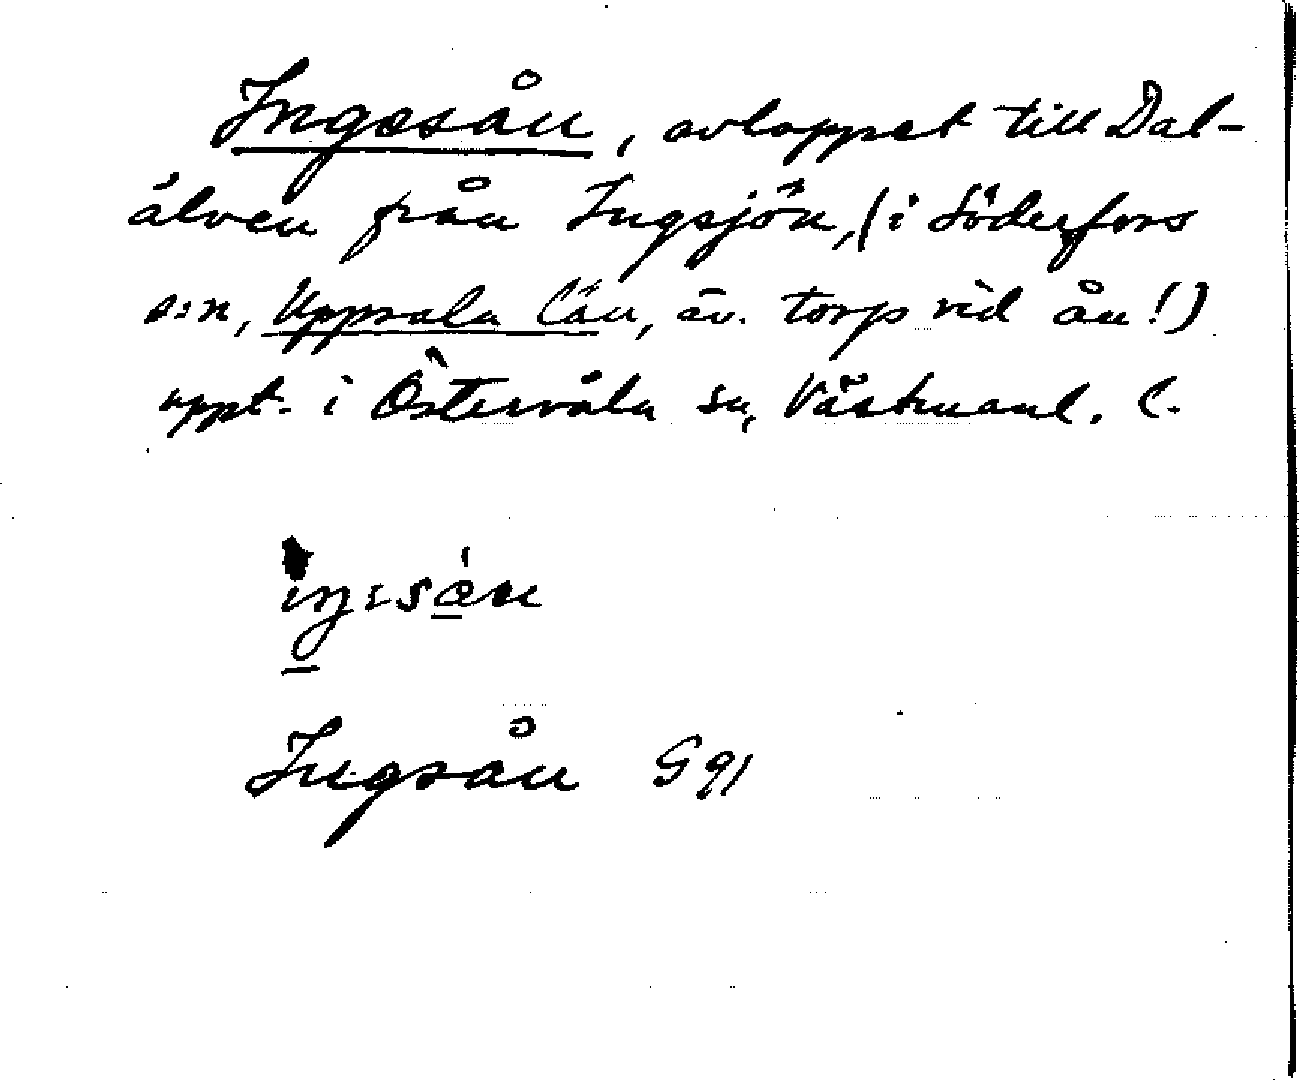 Ingesån, avloppet till Dal-
älven från Ingsjön, (i Söderfors
s:n, Uppsala län, äv. torp vid ån!)
uppt. i Östervåla sn, Västmanl. l.
Ingsån G 91